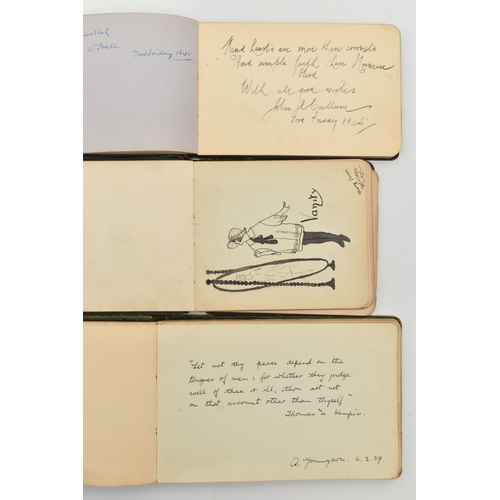 Good Friday 1925
"Kind hearts are more than coronets
And simple faith than Norman
blood
With all good wishes
John
Good Friday 1925
Vanity
"Let not thy peace depend on the
tongues of men; for whether they judge
well of thee or ill, thou art not
on that account other than thyself."
Thomas "a Kempis.
A. Youngson. 6.2.29.